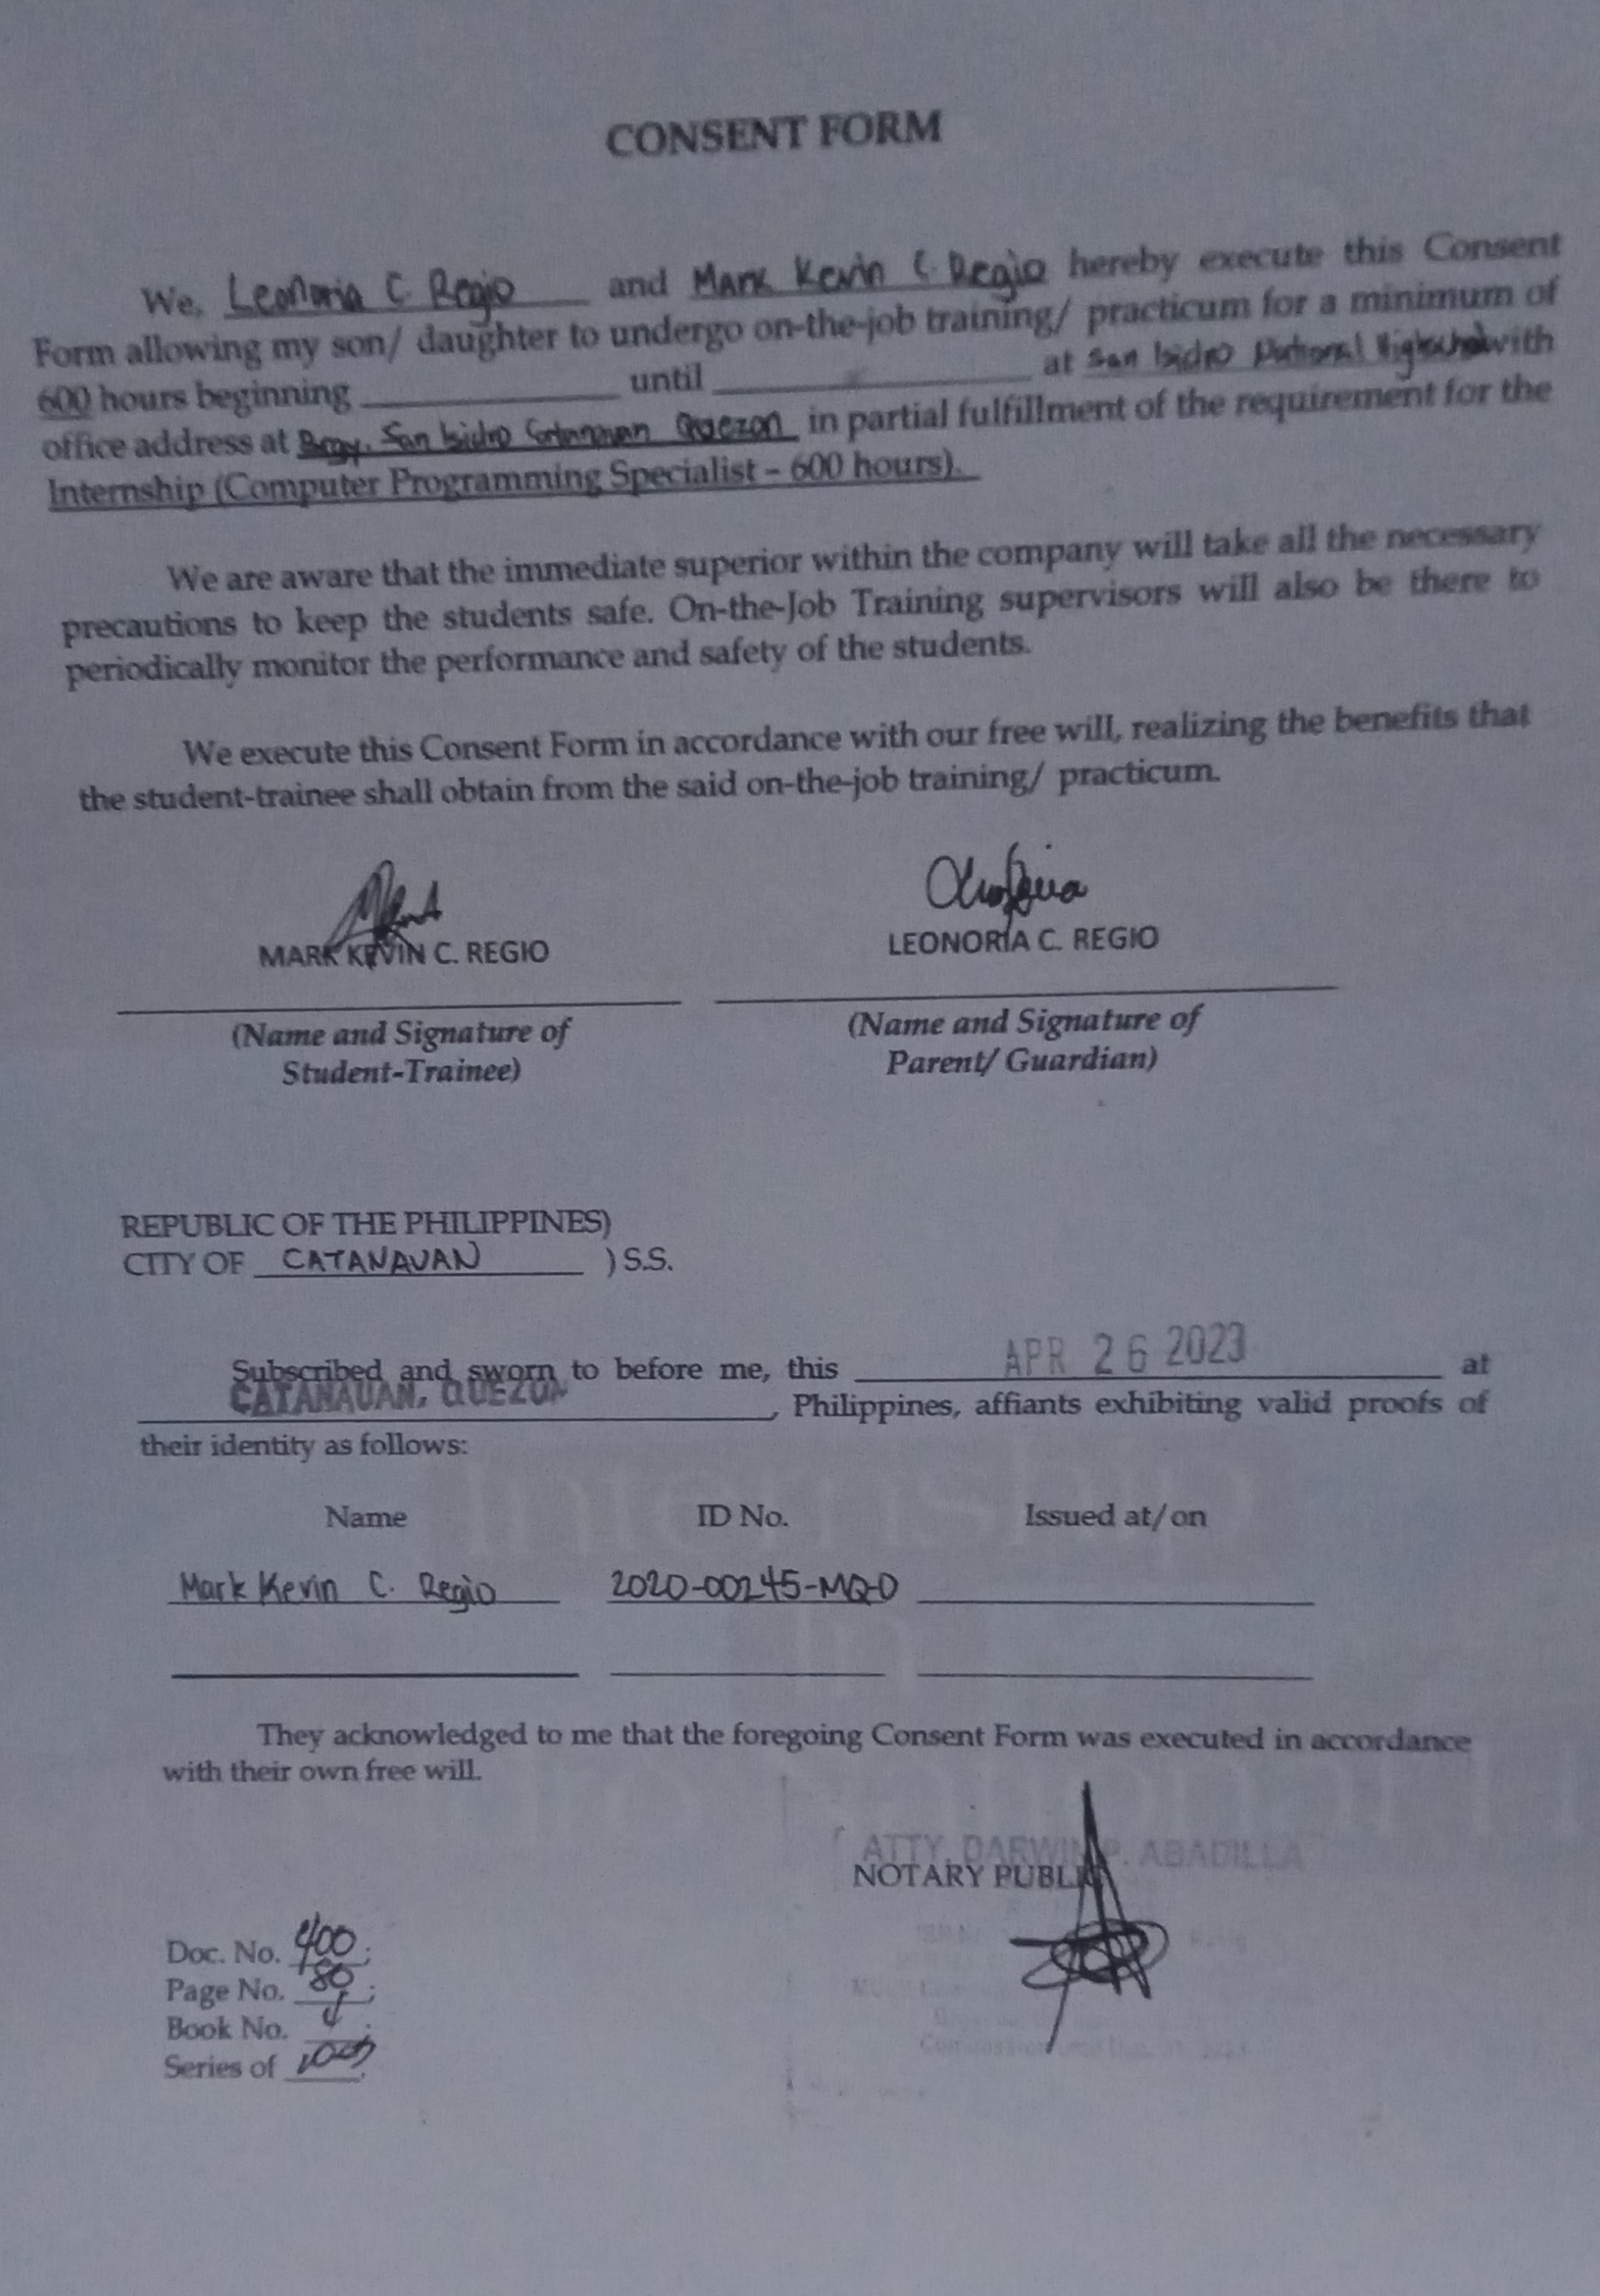 CONSENT FORM
We, Leonoria C. Regio and Mark Kevin C. Regio hereby execute this Consent
Form allowing my son/ daughter to undergo on-the-job training/ practicum for a minimum of
600 hours beginning ____________ until ____________ at San Isidro National Highschool with
office address at Brgy. San Isidro Catanauan Quezon in partial fulfillment of the requirement for the
Internship (Computer Programming Specialist – 600 hours).
We are aware that the immediate superior within the company will take all the necessary
precautions to keep the students safe. On-the-Job Training supervisors will also be there to
periodically monitor the performance and safety of the students.
We execute this Consent Form in accordance with our free will, realizing the benefits that
the student-trainee shall obtain from the said on-the-job training/ practicum.
MARK KEVIN C. REGIO LEONORIA C. REGIO
(Name and Signature of (Name and Signature of
Student-Trainee) Parent/ Guardian)
REPUBLIC OF THE PHILIPPINES)
CITY OF CATANAUAN ) S.S.
Subscribed and sworn to before me, this APR 26 2023 at
CATANAUAN, QUEZON, Philippines, affiants exhibiting valid proofs of
their identity as follows:
Name ID No. Issued at/on
Mark Kevin C. Regio 2020-00245-MQ-0
They acknowledged to me that the foregoing Consent Form was executed in accordance
with their own free will.
ATTY. DARWIN P. ABADILLA
NOTARY PUBLIC
Doc. No. 400;
Page No. 80;
Book No.
Series of